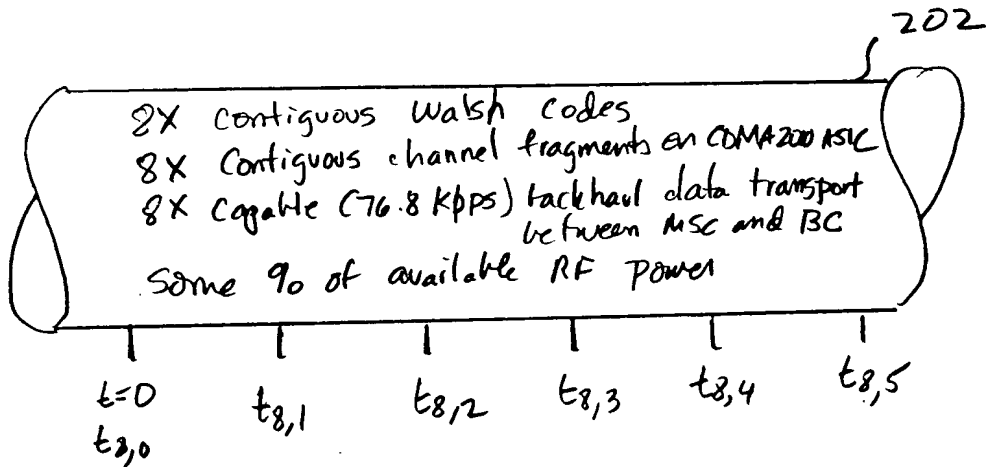 202
8X contiguous Walsh Codes
8X Contiguous channel fragments on CDMA200 ASIC
8X Capable (76.8 Kbps) backhaul data transport
between MSC and BC
Some % of available RF Power
t=0
t8,0 t8,1 t8,2 t8,3 t8,4 t8,5